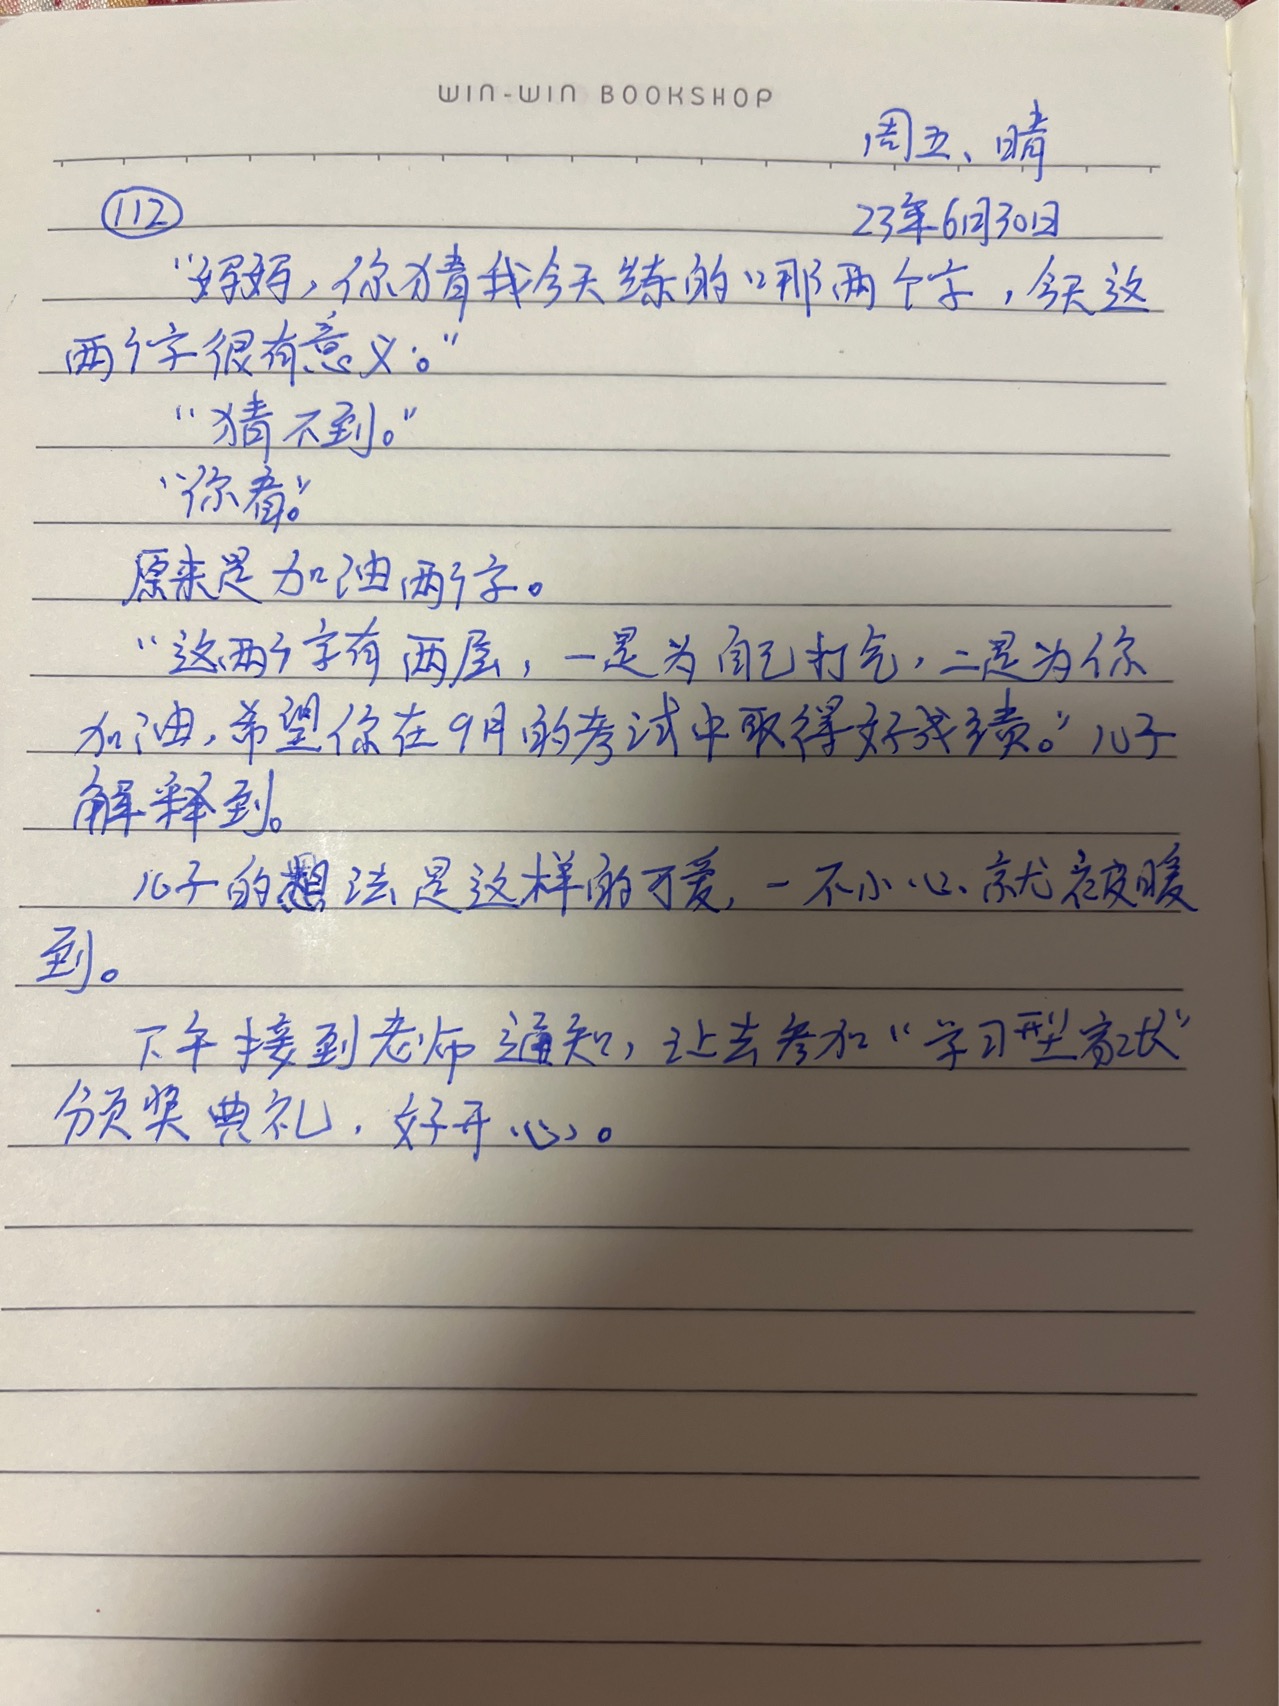 WIN-WIN BOOKSHOP
周五、晴
112
23年6月30日
“妈妈，你猜我今天练的哪两个字，今天这
两个字很有意义。”
“猜不到。”
“你看。”
原来是加油两个字。
“这两个字有两层，一是为自己打气，二是为你
加油，希望你在9月的考试中取得好成绩。”儿子
解释到。
儿子的想法是这样的可爱，一不小心就被暖
到。
下午接到老师通知，让去参加“学习型家长”
颁奖典礼，好开心。